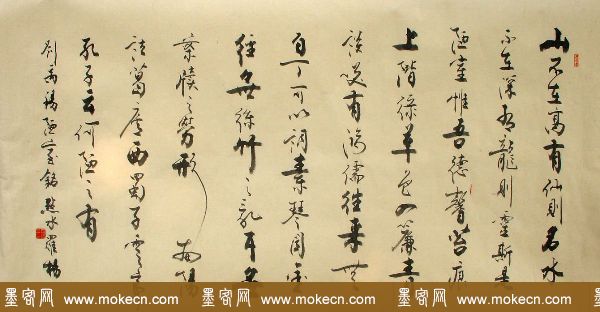 山不在高有仙則名水
不在深有龍則靈斯是
陋室惟吾德馨苔痕
上階綠草色入簾青
談笑有鴻儒往来無
白丁可以調素琴閱金
經無絲竹之亂耳無
案牘之勞形南陽
諸葛廬西蜀子雲亭
孔子云何陋之有
劉禹錫陋室銘 水羅楊
墨客网 www.mokecn.com 墨客网 www.mokecn.com 墨客网 www.mokecn.com